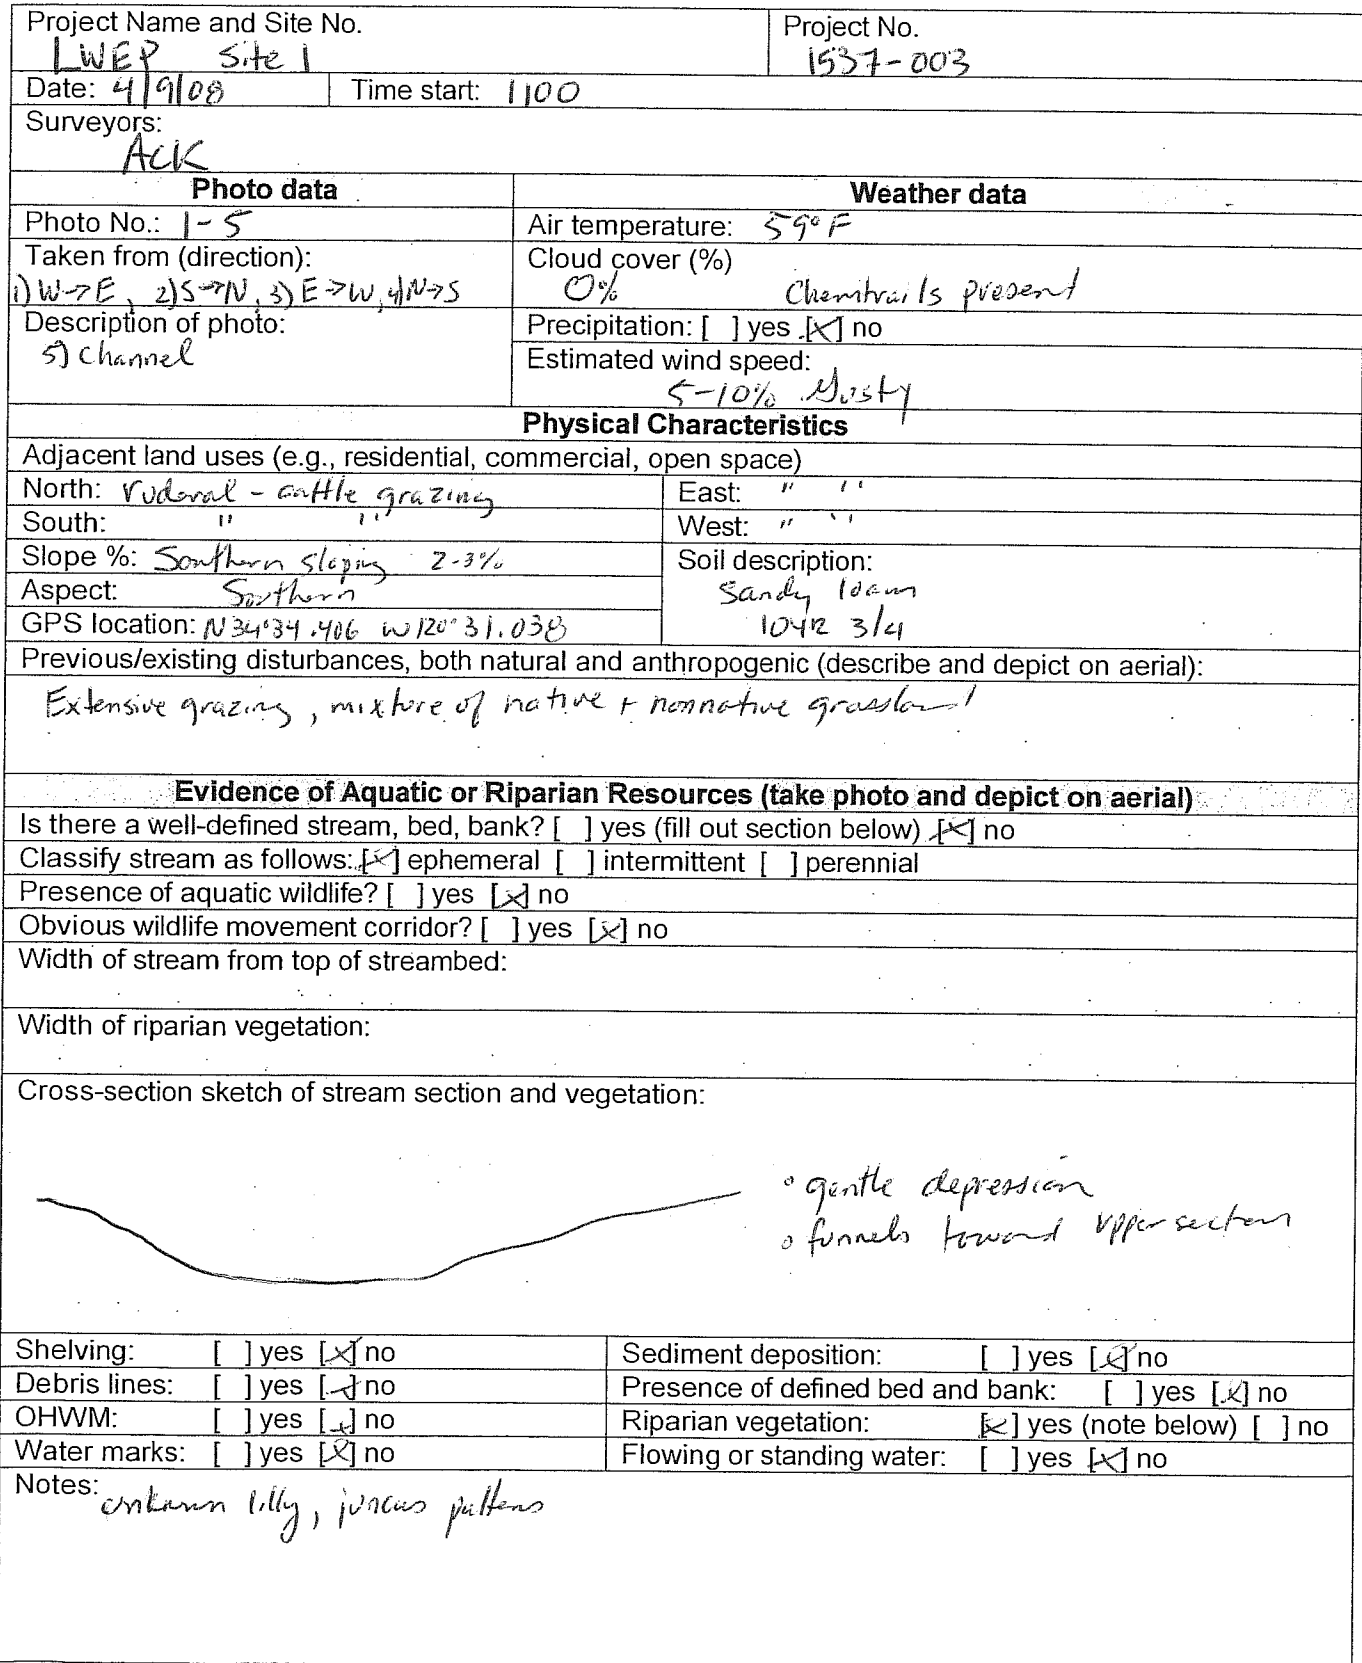 Project Name and Site No.
LWEP Site 1
Project No.
1537-003
Date: 4/9/08
Time start: 1100
Surveyors:
ACK
Photo data
Weather data
Photo No.: 1-5
Air temperature: 59°F
Taken from (direction):
1) W->E, 2) S->N, 3) E->W, 4) N->S
Cloud cover (%)
0% Chemtrails present
Description of photo:
5) Channel
Precipitation: [ ] yes [x] no
Estimated wind speed:
5-10% Gusty
Physical Characteristics
Adjacent land uses (e.g., residential, commercial, open space)
North: ruderal - cattle grazing
East: " "
South: " "
West: " "
Slope %: Southern sloping 2-3%
Soil description:
Sandy loam
10YR 3/4
Aspect: Southern
GPS location: N34°34.406 W120°31.038
Previous/existing disturbances, both natural and anthropogenic (describe and depict on aerial):
Extensive grazing, mixture of native + nonnative grassland
Evidence of Aquatic or Riparian Resources (take photo and depict on aerial)
Is there a well-defined stream, bed, bank? [ ] yes (fill out section below) [x] no
Classify stream as follows: [x] ephemeral [ ] intermittent [ ] perennial
Presence of aquatic wildlife? [ ] yes [x] no
Obvious wildlife movement corridor? [ ] yes [x] no
Width of stream from top of streambed:
Width of riparian vegetation:
Cross-section sketch of stream section and vegetation:
° gentle depression
° funnels toward upper section
Shelving: [ ] yes [x] no
Sediment deposition: [ ] yes [x] no
Debris lines: [ ] yes [x] no
Presence of defined bed and bank: [ ] yes [x] no
OHWM: [ ] yes [x] no
Riparian vegetation: [x] yes (note below) [ ] no
Water marks: [ ] yes [x] no
Flowing or standing water: [ ] yes [x] no
Notes: unknown lilly, juncus pattens